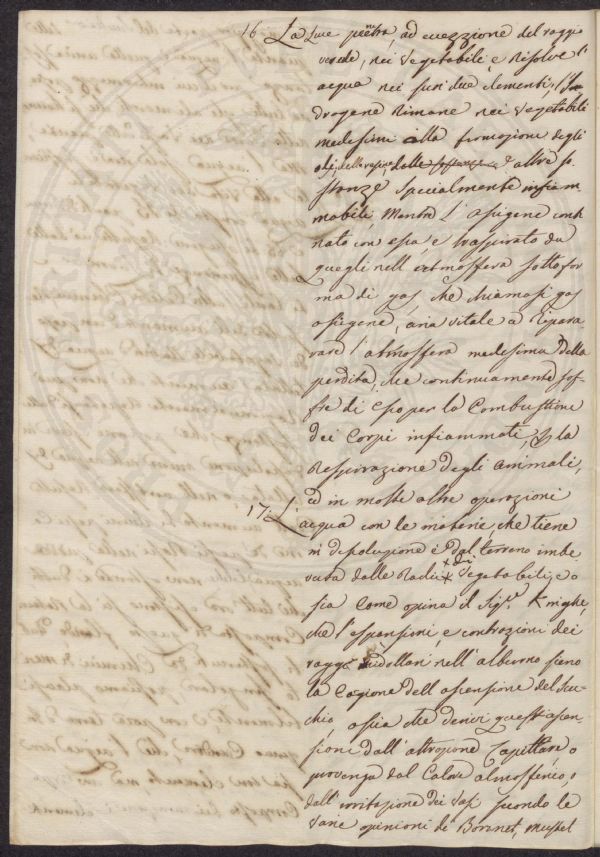 16 La luce penetra, ad eccezzione del raggio
verde, nei Vegetabili, e Risolve l'
acqua nei suoi due elementi; l'I
drogene Rimane nei Vegetabili
medesimi alla formazione degli
oli, delle resine, delle sostanze e altre so
stanze specialmente infiam
mabili, Mentre l'ossigene
con essa, è traspirato da
quegli nell'Atmosfera sotto for
ma di gas, che chiamasi gas
ossigene, aria vitale a Ripara
rare l'atmosfera medesima della
perdita, che continuamente sof
fre di esso per la Combustione
dei Corpi infiammati, la
Respirazione degli animali,
ed in molte altre operazioni
17. L'
acqua con le materie, che tiene
in dissoluzione è dal terreno imbe
vuta dalle Radici di Vegetabili; e o
sia Come opina il Sigr. Knight,
che l'espansioni, e contrazioni dei
raggi midollari nell'alburno sieno
la Cagione dell'ascensione del Suc
chio, ossia che derivi quest'ascen
sioni dall'attrazione Capillare, o
provenga dal Calore atmosferico, o
dall'irritazione dei Vasi secondo le
Varie opinioni de' Bonnet, Mustel